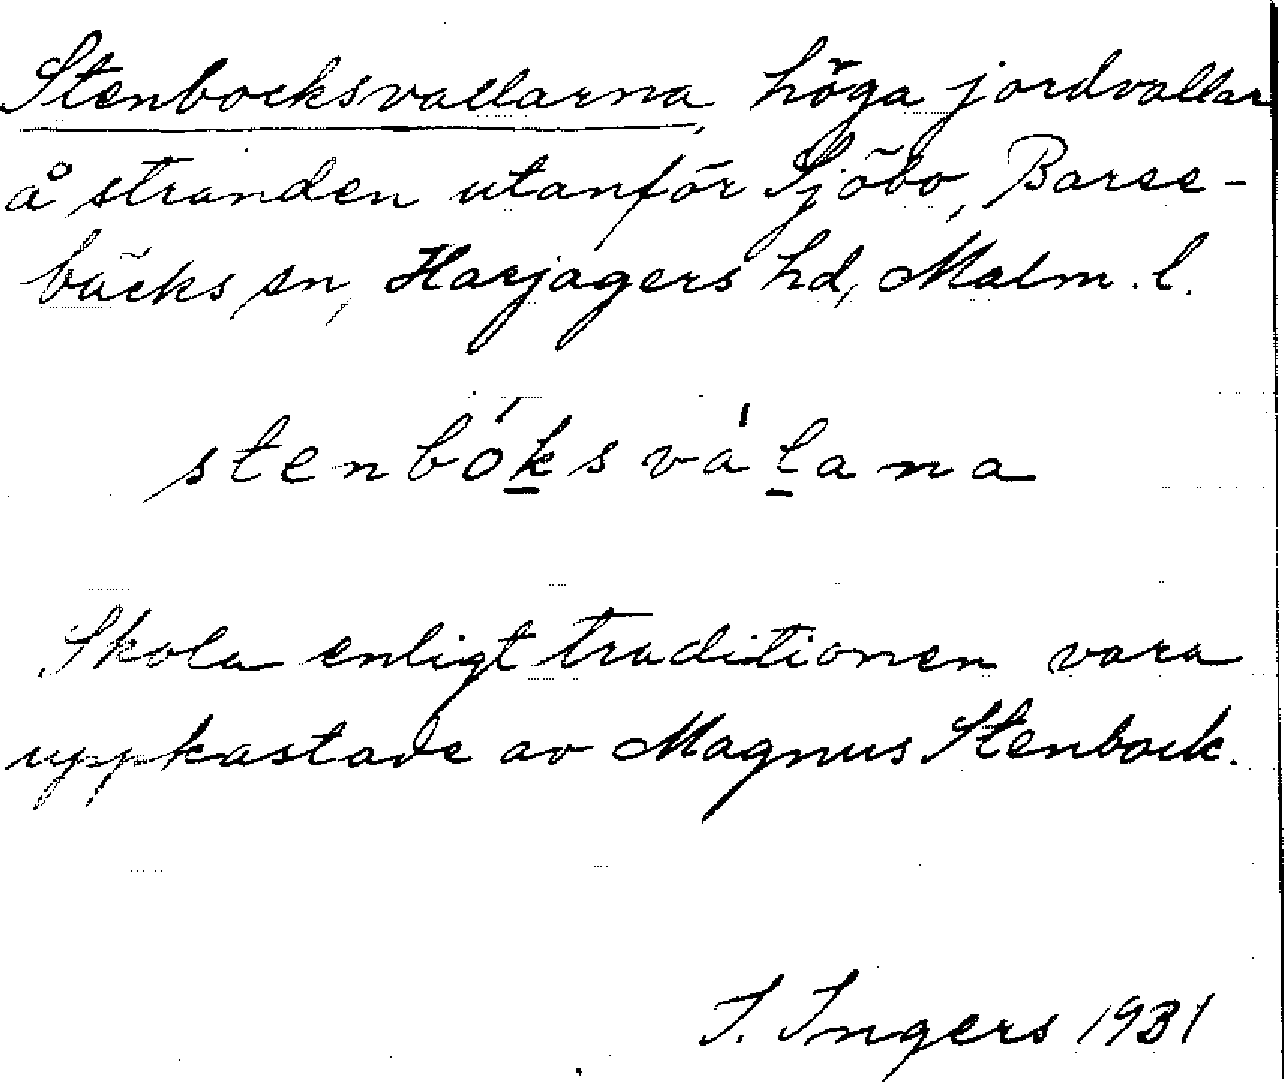 Stenbocksvallarna, höga jordvallar
å stranden utanför Sjöbo, Barse-
bäcks sn, Harjagers hd, Malm. l.
stenbóksválana
Skola enligt traditionen vara
uppkastade av Magnus Stenbock.
I. Ingers 1931